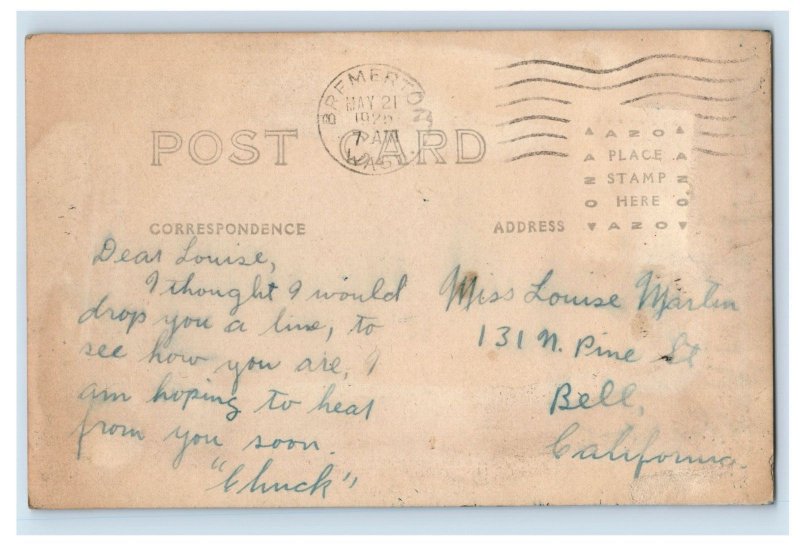 BREMERTON
MAY 21
7 AM
WASH.
POST CARD
AZO
PLACE
STAMP
HERE
AZO
CORRESPONDENCE
ADDRESS
Dear Louise,
I thought I would
drop you a line, to
see how you are, I
am hoping to hear
from you soon.
"Chuck"
Miss Louise Martin
131 N. Pine St.
Bell,
California.